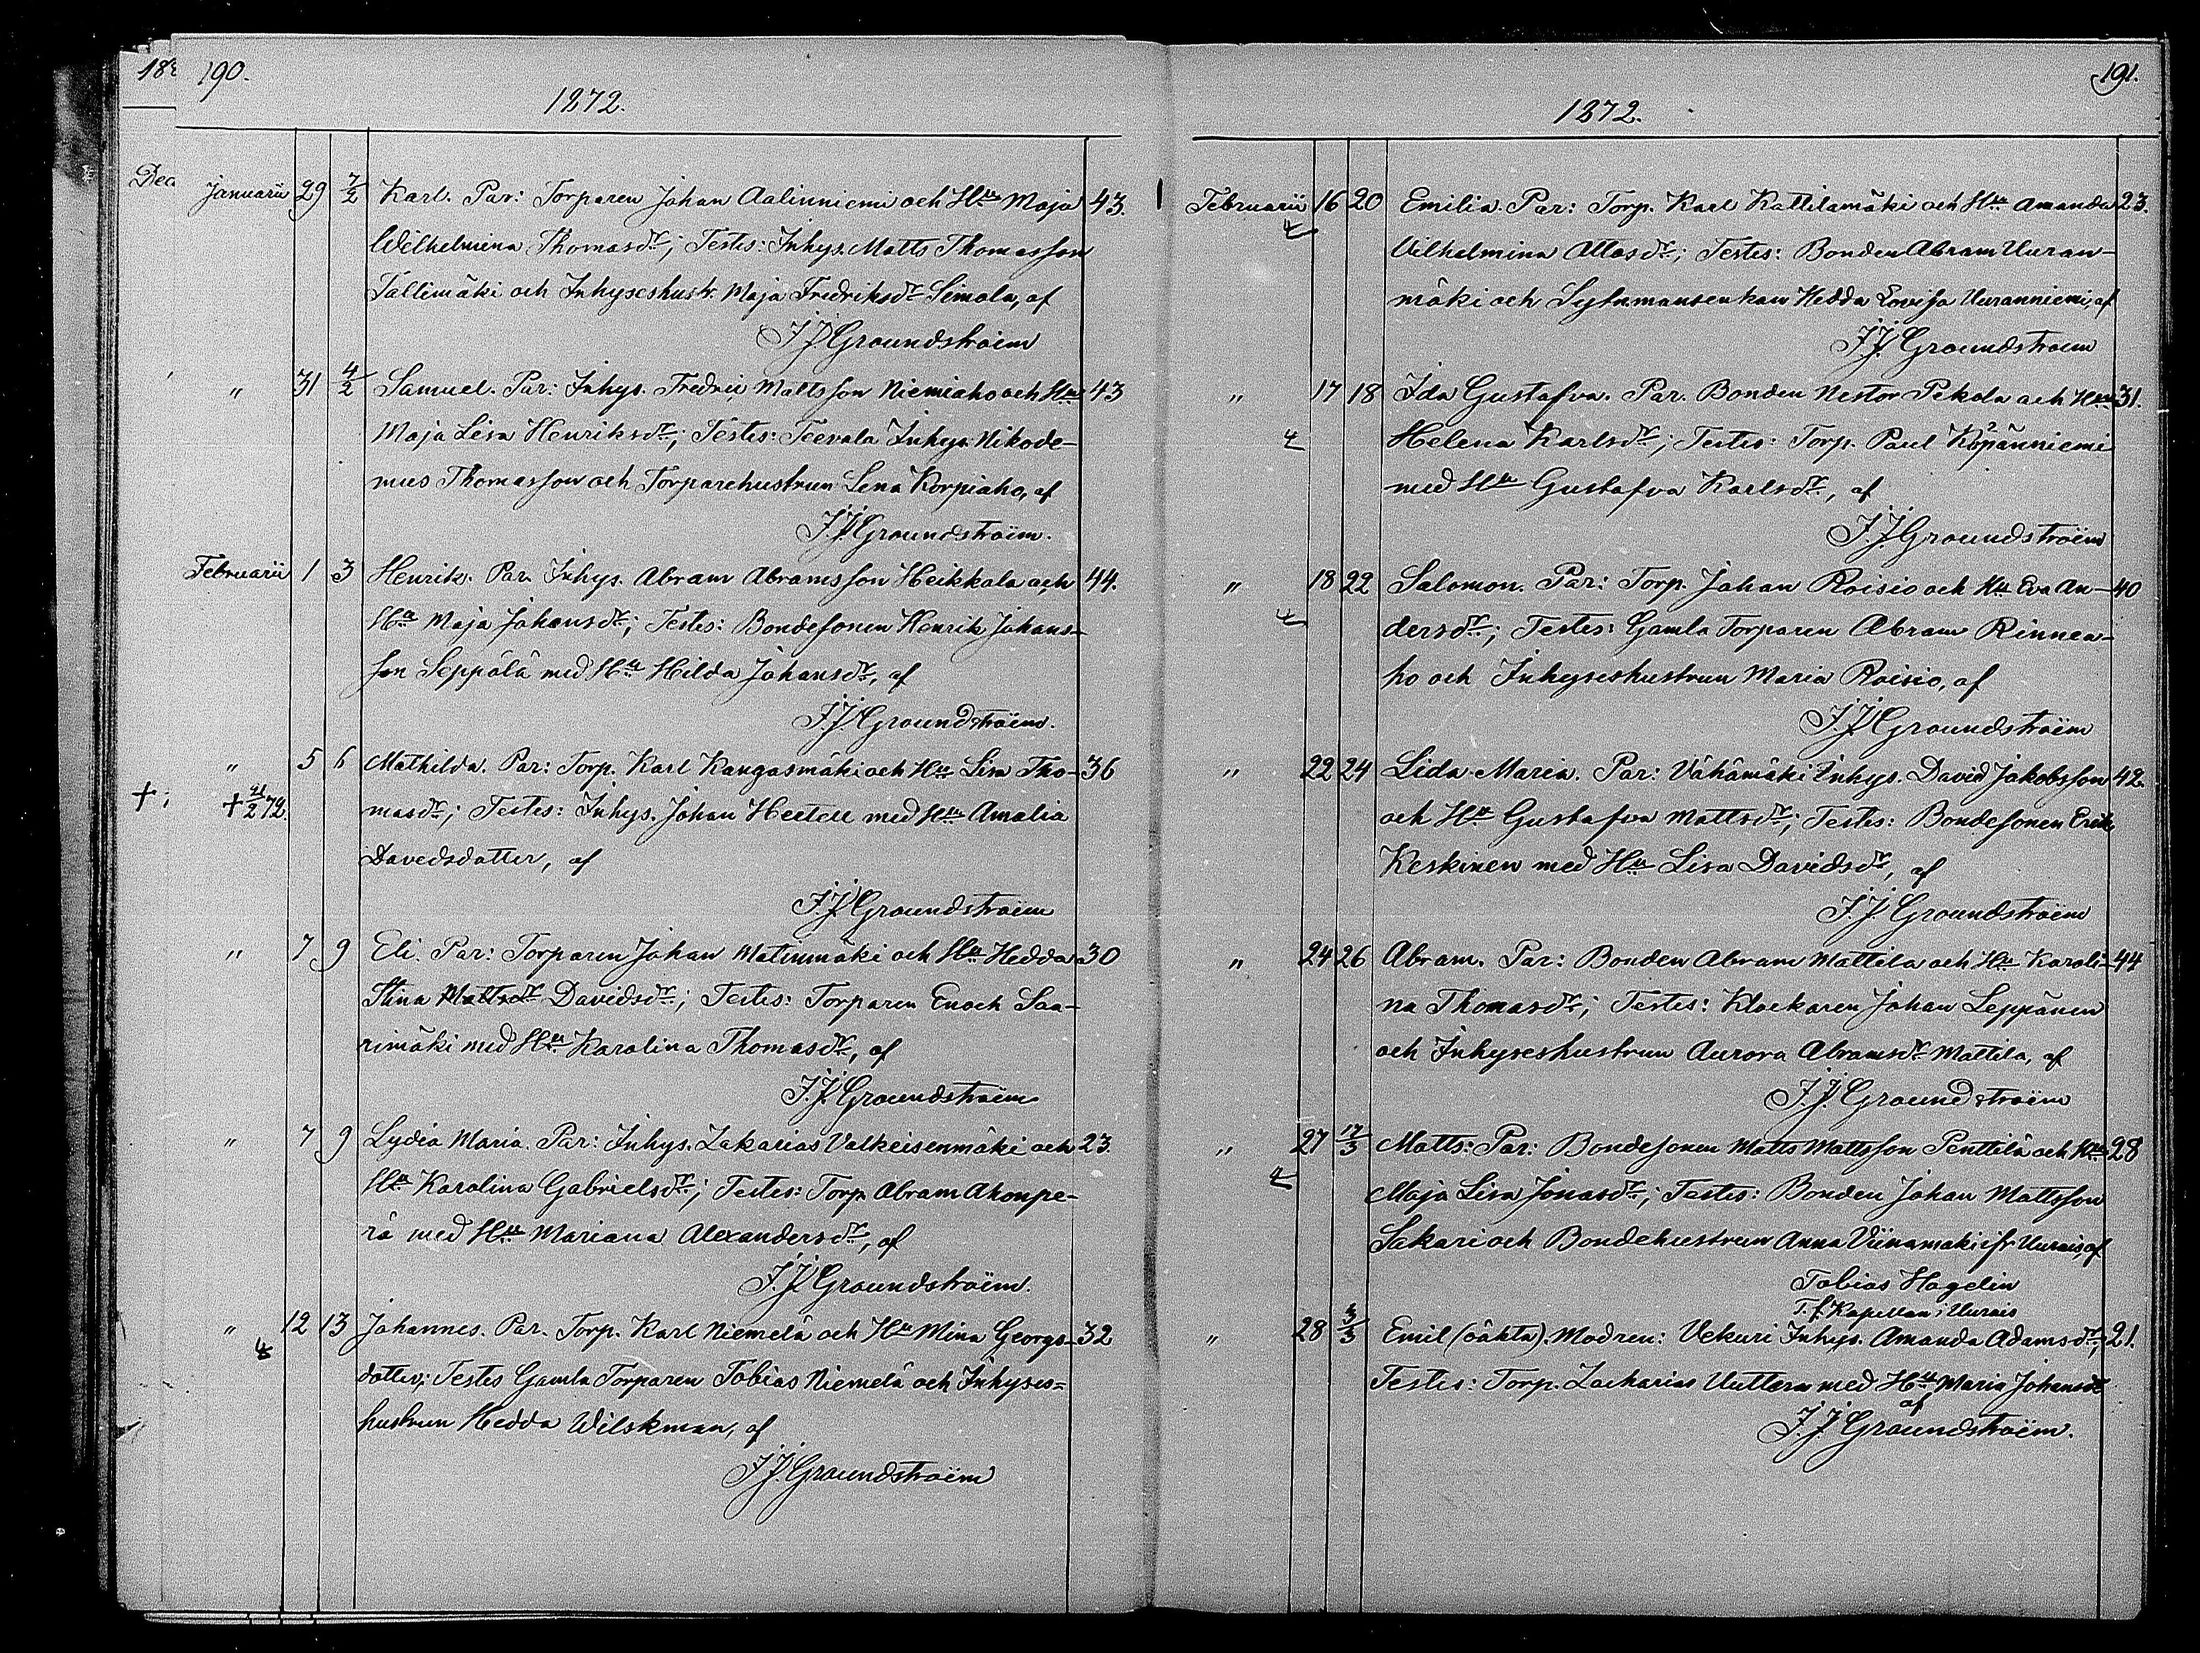 190.
1872.
Januarii 29 7/2 Karl. Par: Torparen Johan Aalinniemi och Hu Maja 43.
Wilhelmina Thomasdr; Testes: Inhys. Matts Thomasson
Tallimäki och Inhyseshustr. Maja Fredriksdr Simola, af
J.J. Groundstroëm
" 31 4/2 Samuel. Par: Inhys. Fredric Mattsson Niemiaho och Hu 43
Maja Lisa Henriksdr; Testes: Teerala Inhys. Nikode-
mus Thomasson och Torparehustrun Lena Korpiaho, af
J.J. Groundstroëm.
Februarii 1 3 Henrik. Par. Inhys. Abram Abramsson Heikkala och 44.
Hu Maja Johansdr; Testes: Bondesonen Henrik Johans-
son Seppälä med Hu Hilda Johansdr, af
J.J. Groundstroëm.
" 5 6 Mathilda. Par: Torp. Karl Kangasmäki och Hu Lisa Tho- 36
+ 21/2 72. masdr; Testes: Inhys. Johan Hertell med Hu Amalia
Davidsdotter, af
J.J. Groundstroëm
" 7 9 Eli. Par: Torparen Johan Matinmäki och Hu Hedda 30
Stina Mattsdr Davidsdr; Testes: Torparen Enoch Saa-
rimäki med Hu Karolina Thomasdr, af
J.J. Groundstroëm
" 7 9 Lydia Maria. Par: Inhys. Zakarias Valkeisenmäki och 23.
Hu Karolina Gabrielsdr; Testes: Torp. Abram Ahonpe-
rä med Hu Mariana Alexandersdr, af
J.J. Groundstroëm.
" 12 13 Johannes. Par. Torp. Karl Niemelä och Hu Mina Georgs- 32
dotter; Testes Gamla Torparen Tobias Niemelä och Inhyses-
hustrun Hedda Wilskman, af
J.J. Groundstroëm
191.
1872.
Februarii 16 20 Emilia. Par: Torp. Karl Kattilamäki och Hu Amanda 23.
Vilhelmina Attosdr; Testes: Bonden Abram Uuran-
mäki och Hedda Lovisa Uuranniemi, af
J.J. Groundstroëm
" 17 18 Ida Gustafva. Par. Bonden Nestor Pekola och Hu 31.
Helena Karlsdr; Testes: Torp. Paul Kopänniemi
med Hu Gustafva Karlsdr, af
J.J. Groundstroëm
" 18 22 Salomon. Par: Torp. Johan Roisio och Hu Eva An- 40
dersdr; Testes: Gamla Torparen Abram Rinnea-
ho och Inhyseshustrun Maria Roisio, af
J.J. Groundstroëm
" 22 24 Lida Maria. Par: Vähämäki Inhys. David Jakobsson 42.
och Hu Gustafva Mattsdr; Testes: Bondesonen Erik
Keskinen med Hu Lisa Davidsdr, af
J.J. Groundstroëm
" 24 26 Abram. Par: Bonden Abram Mattila och Hu Karoli- 44
na Thomasdr; Testes: Klockaren Johan Leppänen
och Inhyseshustrun Aurora Abramsdr Mattila, af
J.J. Groundstroëm
" 27 17/3 Matts: Par: Bondesonen Matts Mattsson Penttilä och Hu 28
Maja Lisa Jonasdr; Testes: Bonden Johan Mattsson
Sakari och Bondehustrun Anna Viinamäki ifr Uurais, af
Tobias Hagelin
T.f. Kapellan i Uurais
" 28 3/3 Emil (oäkta). Modren: Vekuri Inhys. Amanda Adamsdr; 21.
Testes: Torp. Zacharias Uuttera med Hu Maria Johansdr
af
J.J. Groundstroëm.